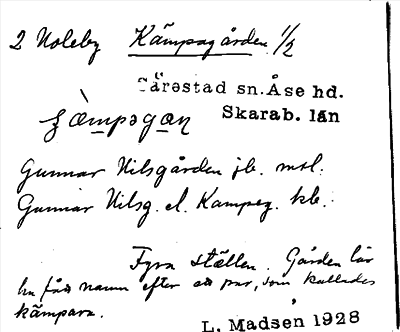 2 Noleby Kämpagården 1/2
Särestad sn. Åse hd.
Skarab. län
Gunnar Nilsgården jb. mtl.
Gunnar Nilsg. el. Kampeg. kb.
Fyra ställen. Gården lär
ha fått namn efter ett par, som kallades
kämpara.
L. Madsen 1928